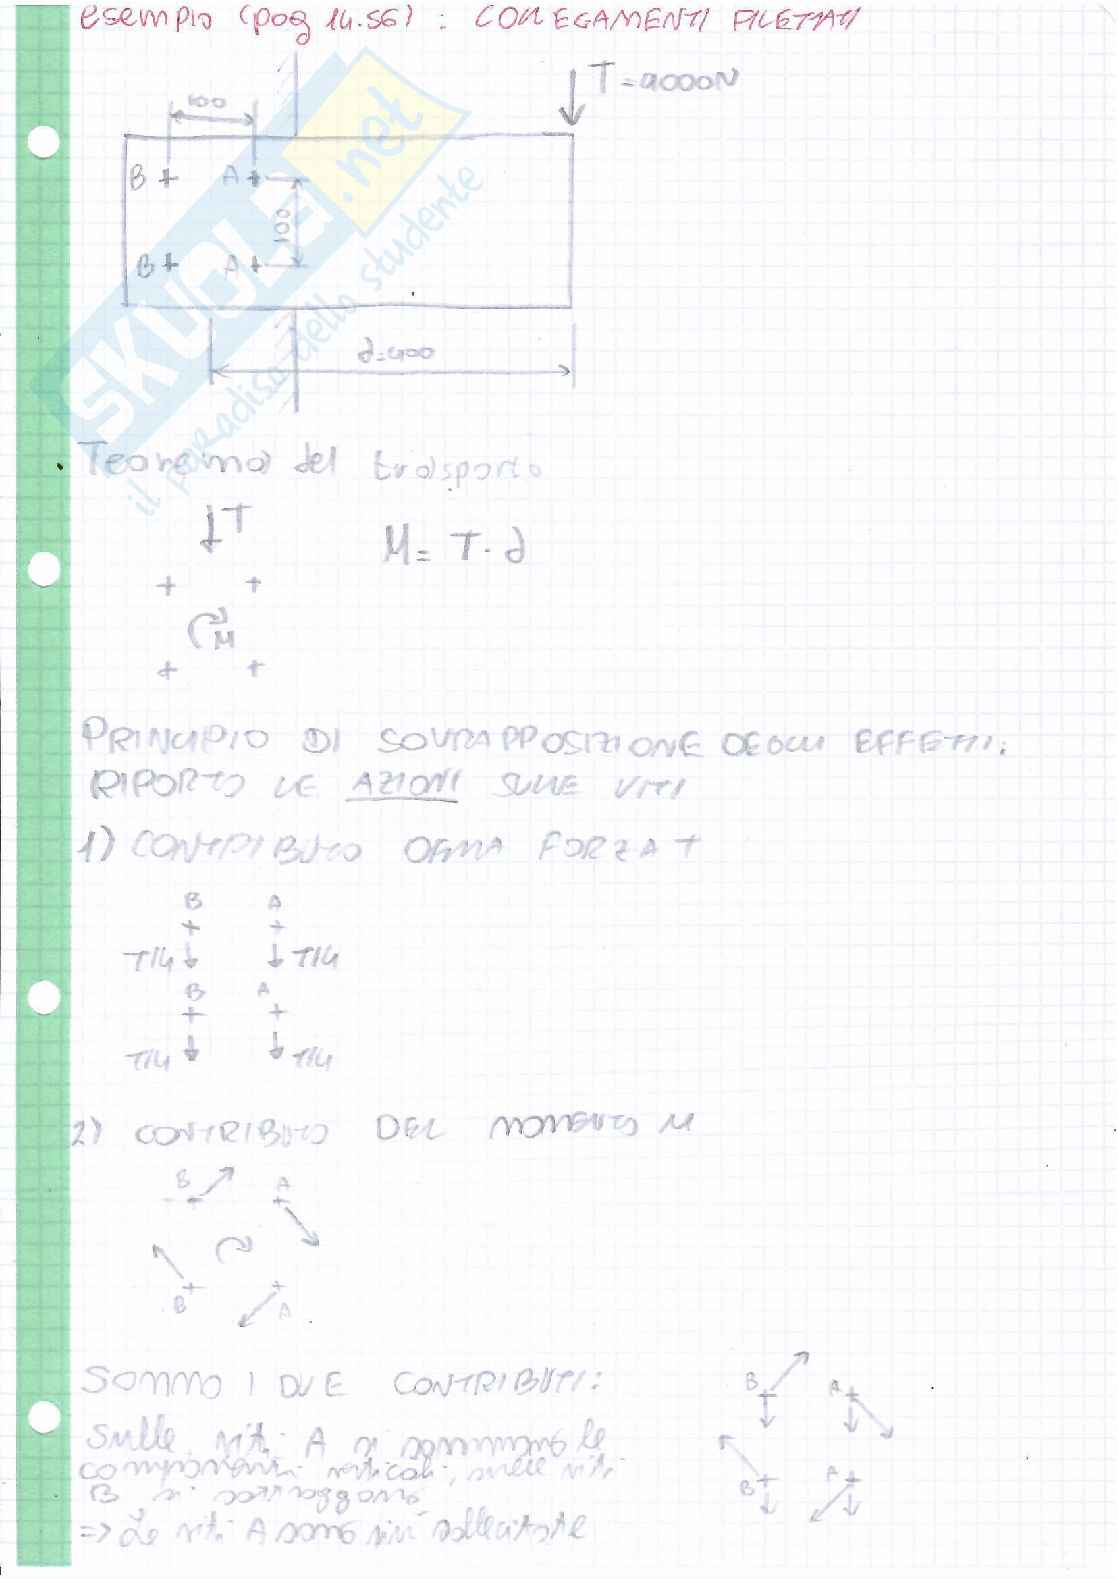 esempio (pag 14.56) : COLLEGAMENTI FILETTATI
T=4000N
100
B A
100
B A
d=400
SKUOLA.net
il paradiso dello studente
Teorema del trasporto
T
M= T·d
M
PRINCIPIO DI SOVRAPPOSIZIONE DEGLI EFFETTI:
RIPORTO LE AZIONI SULLE VITI
1) CONTRIBUTO DELLA FORZA T
B A
T/4 T/4
B A
T/4 T/4
2) CONTRIBUTO DEL MOMENTO M
B A
B A
SOMMO I DUE CONTRIBUTI:
B A
B A
Sulle viti A si sommano le
componenti verticali, sulle viti
B si sottraggono
=> Le viti A sono più sollecitate